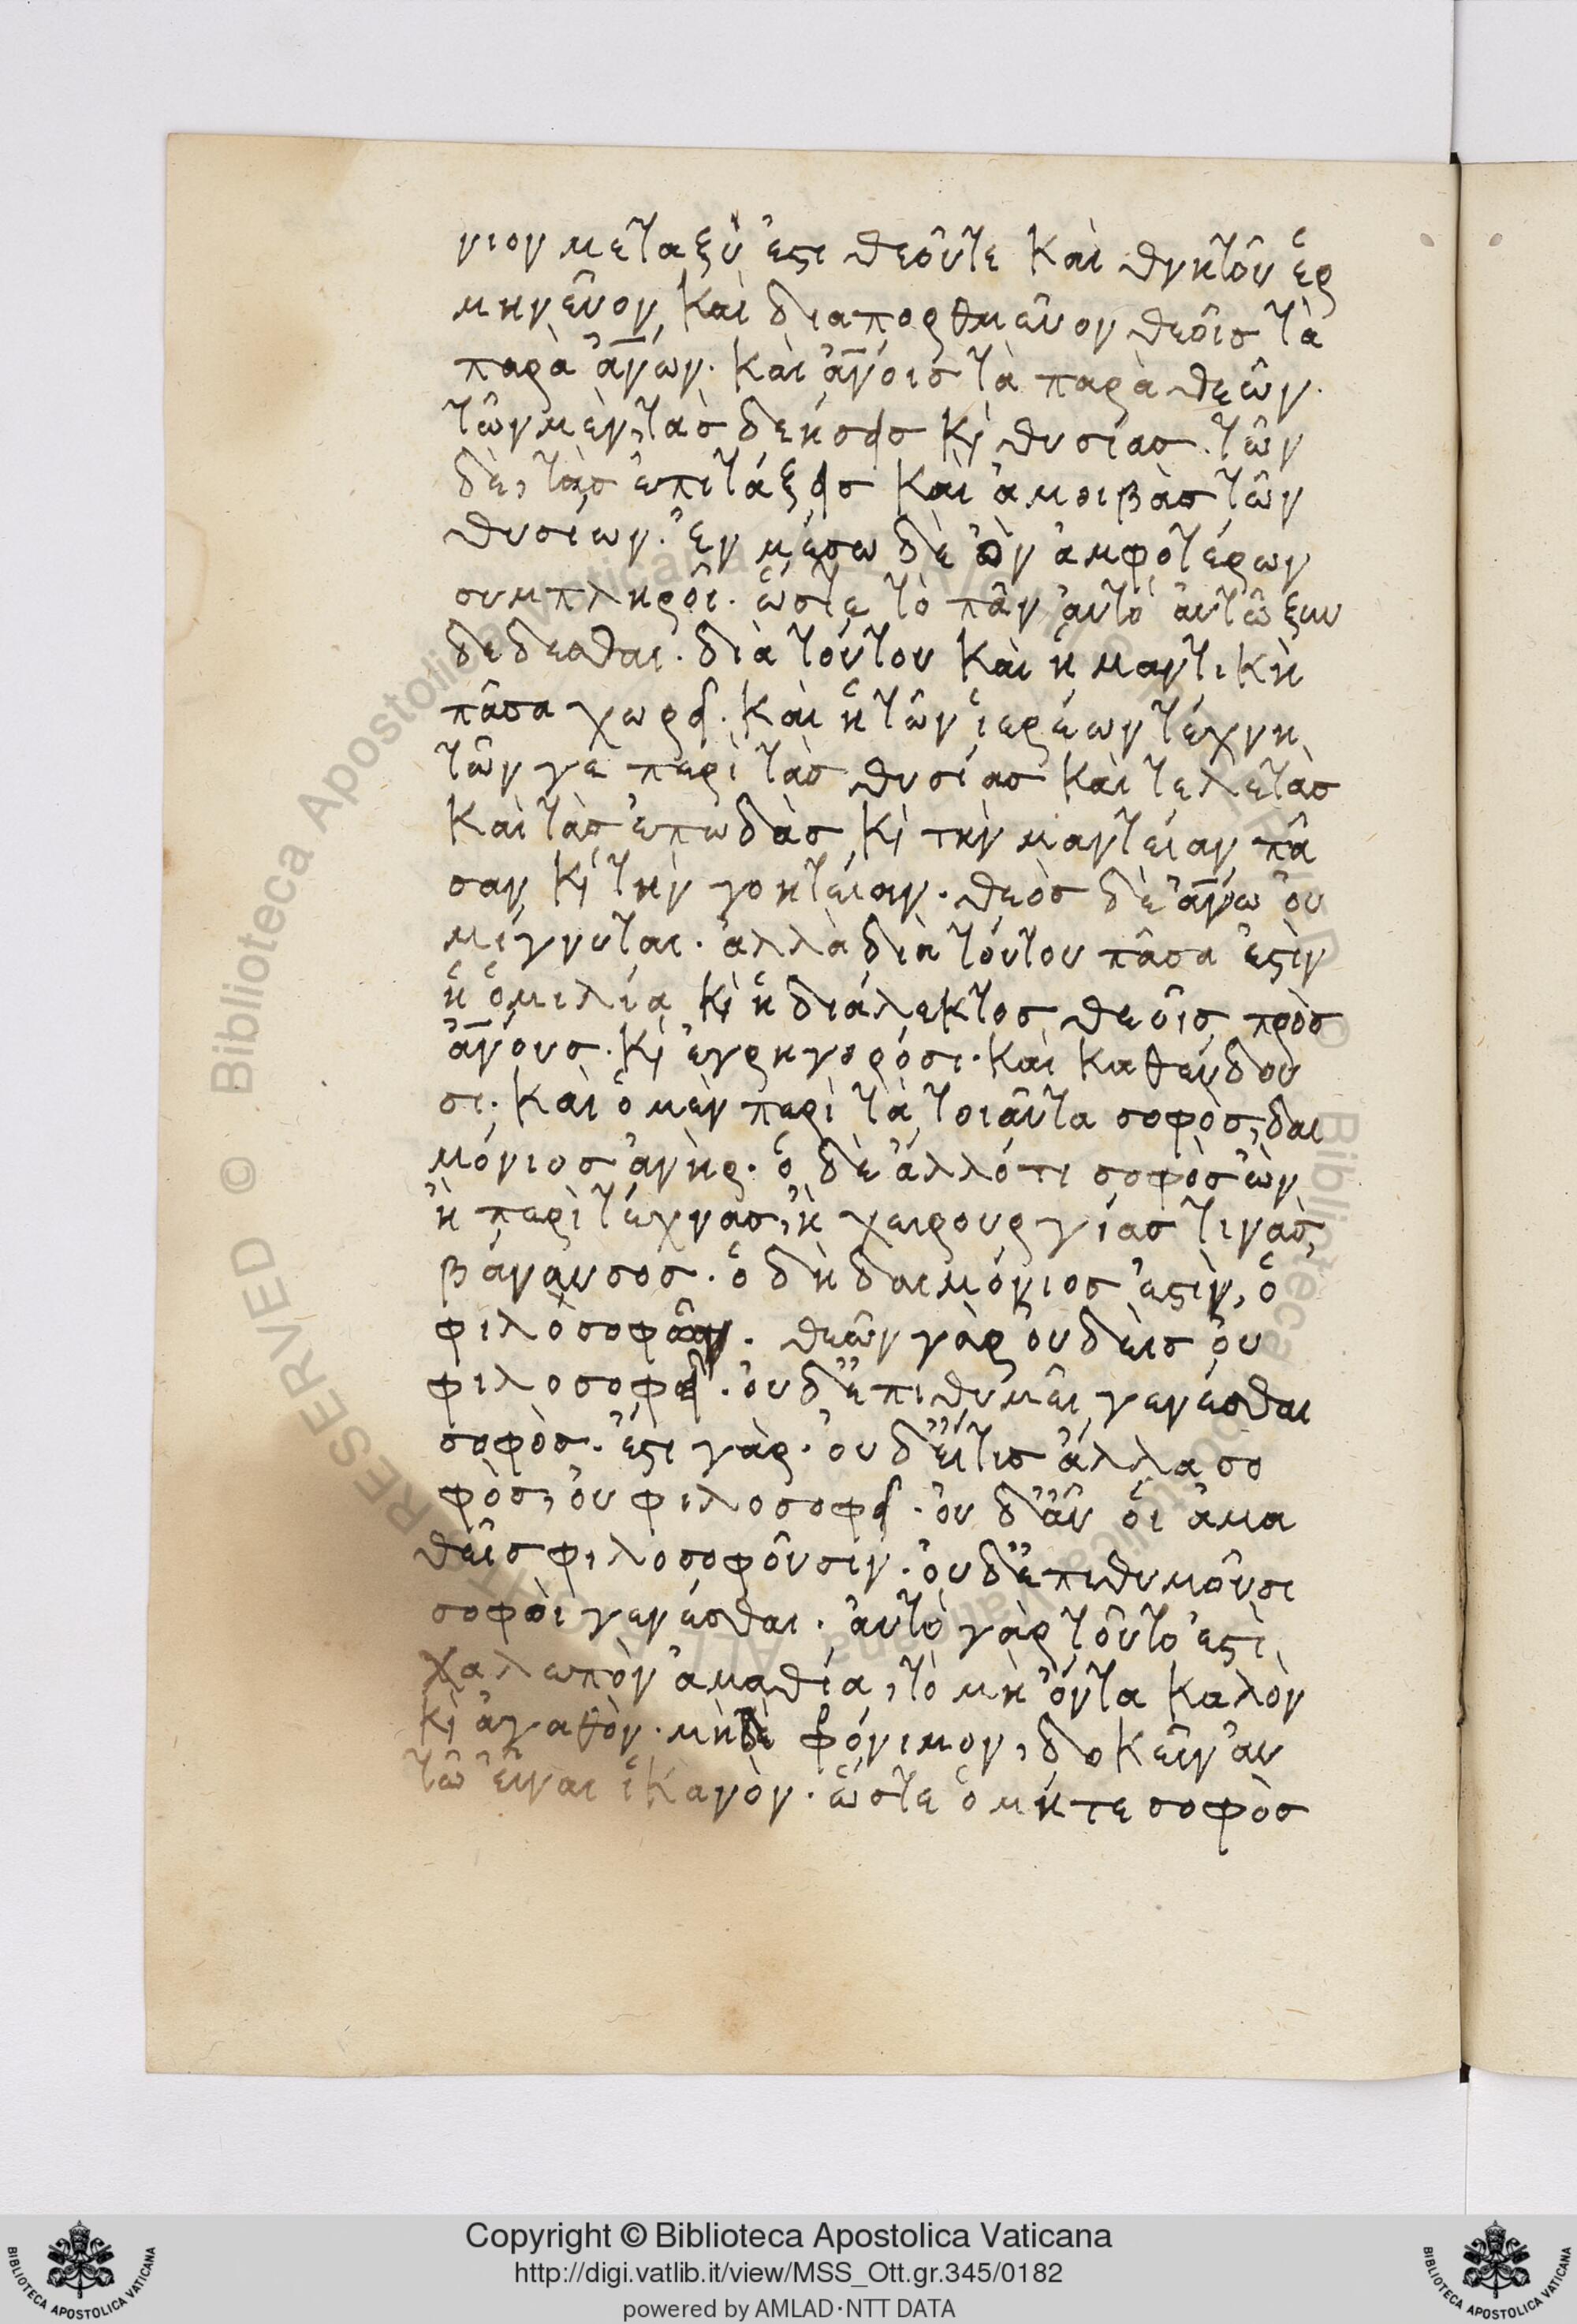 νιον μεταξύ ἐστι θεοῦτε καὶ θνητοῦ ἑρ
μηνεῦον καὶ διαπορθμεῦον θεοῖς τὰ
παρὰ ἀν̅ων. καὶ ἀν̅οις τὰ παρὰ θεῶν.
τῶν μὲν, τὰς δεήσεις κὶ θυσίας. τῶν
δὲ, τὰς ἐπιτάξεις καὶ ἀμοιβὰς τῶν
θυσιων. ἐν μέσω δὲ ὂν ἀμφοτέρων
συμπληροῖ. ὥστε τὸ πᾶν αὐτὸ αὑτῶ ξυν
δεδεσθαι. διὰ τούτου καὶ ἡ μαντικὴ
πᾶσα χωρεῖ. καὶ ἡ τῶν ἱερέων τέχνη
τῶν γε περὶ τὰς θυσίας καὶ τελετὰς
καὶ τὰς ἐπωδὰς κὶ τὴν μαντείαν πᾶ
σαν κὶ τὴν γοητείαν. θεὸς δὲ ἀν̅ω οὐ
μίγνυται. ἀλλὰ διὰ τούτου πᾶσα ἐστὶν
ἡ ὁμιλία κὶ ἡ διάλεκτος θεοῖς πρὸς
ἀν̅ους. κὶ ἐγρηγορόσι. καὶ καθεύδου
σι. καὶ ὁ μὲν περὶ τὰ τοιαῦτα σοφὸς, δαι
μόνιος ἀνὴρ. ὁ δὲ ἄλλό τι σοφὸς ὢν
ἢ περὶ τέχνας, ἢ χειρουργίας τινὰς,
βάναυσος. ὁ δὴ δαιμόνιος ἐστὶν, ὁ
φιλοσοφῶν. θεῶν γὰρ οὐδεὶς οὐ
φιλοσοφεῖ. οὐδ' ἐπιθυμεῖ γενέσθαι
σοφὸς. ἔστι γὰρ. οὐδ' εἴ τις ἄλλα σο
φὸς, οὐ φιλοσοφεῖ. οὐδ' ἂν οἱ ἀμα
θεῖς φιλοσοφοῦσιν. οὐδ' ἐπιθυμοῦσι
σοφοὶ γενέσθαι. αὐτὸ γὰρ τοῦτο ἐστὶ
χαλεπὸν ἀμαθία, τὸ μὴ ὄντα καλὸν
κὶ ἀγαθὸν. μὴδὲ φρόνιμον, δοκεῖν αὑ
τῶ εἶναι ἱκανὸν. ὥστε ὁ μήτε σοφὸς
Copyright © Biblioteca Apostolica Vaticana
http://digi.vatlib.it/view/MSS_Ott.gr.345/0182
powered by AMLAD·NTT DATA